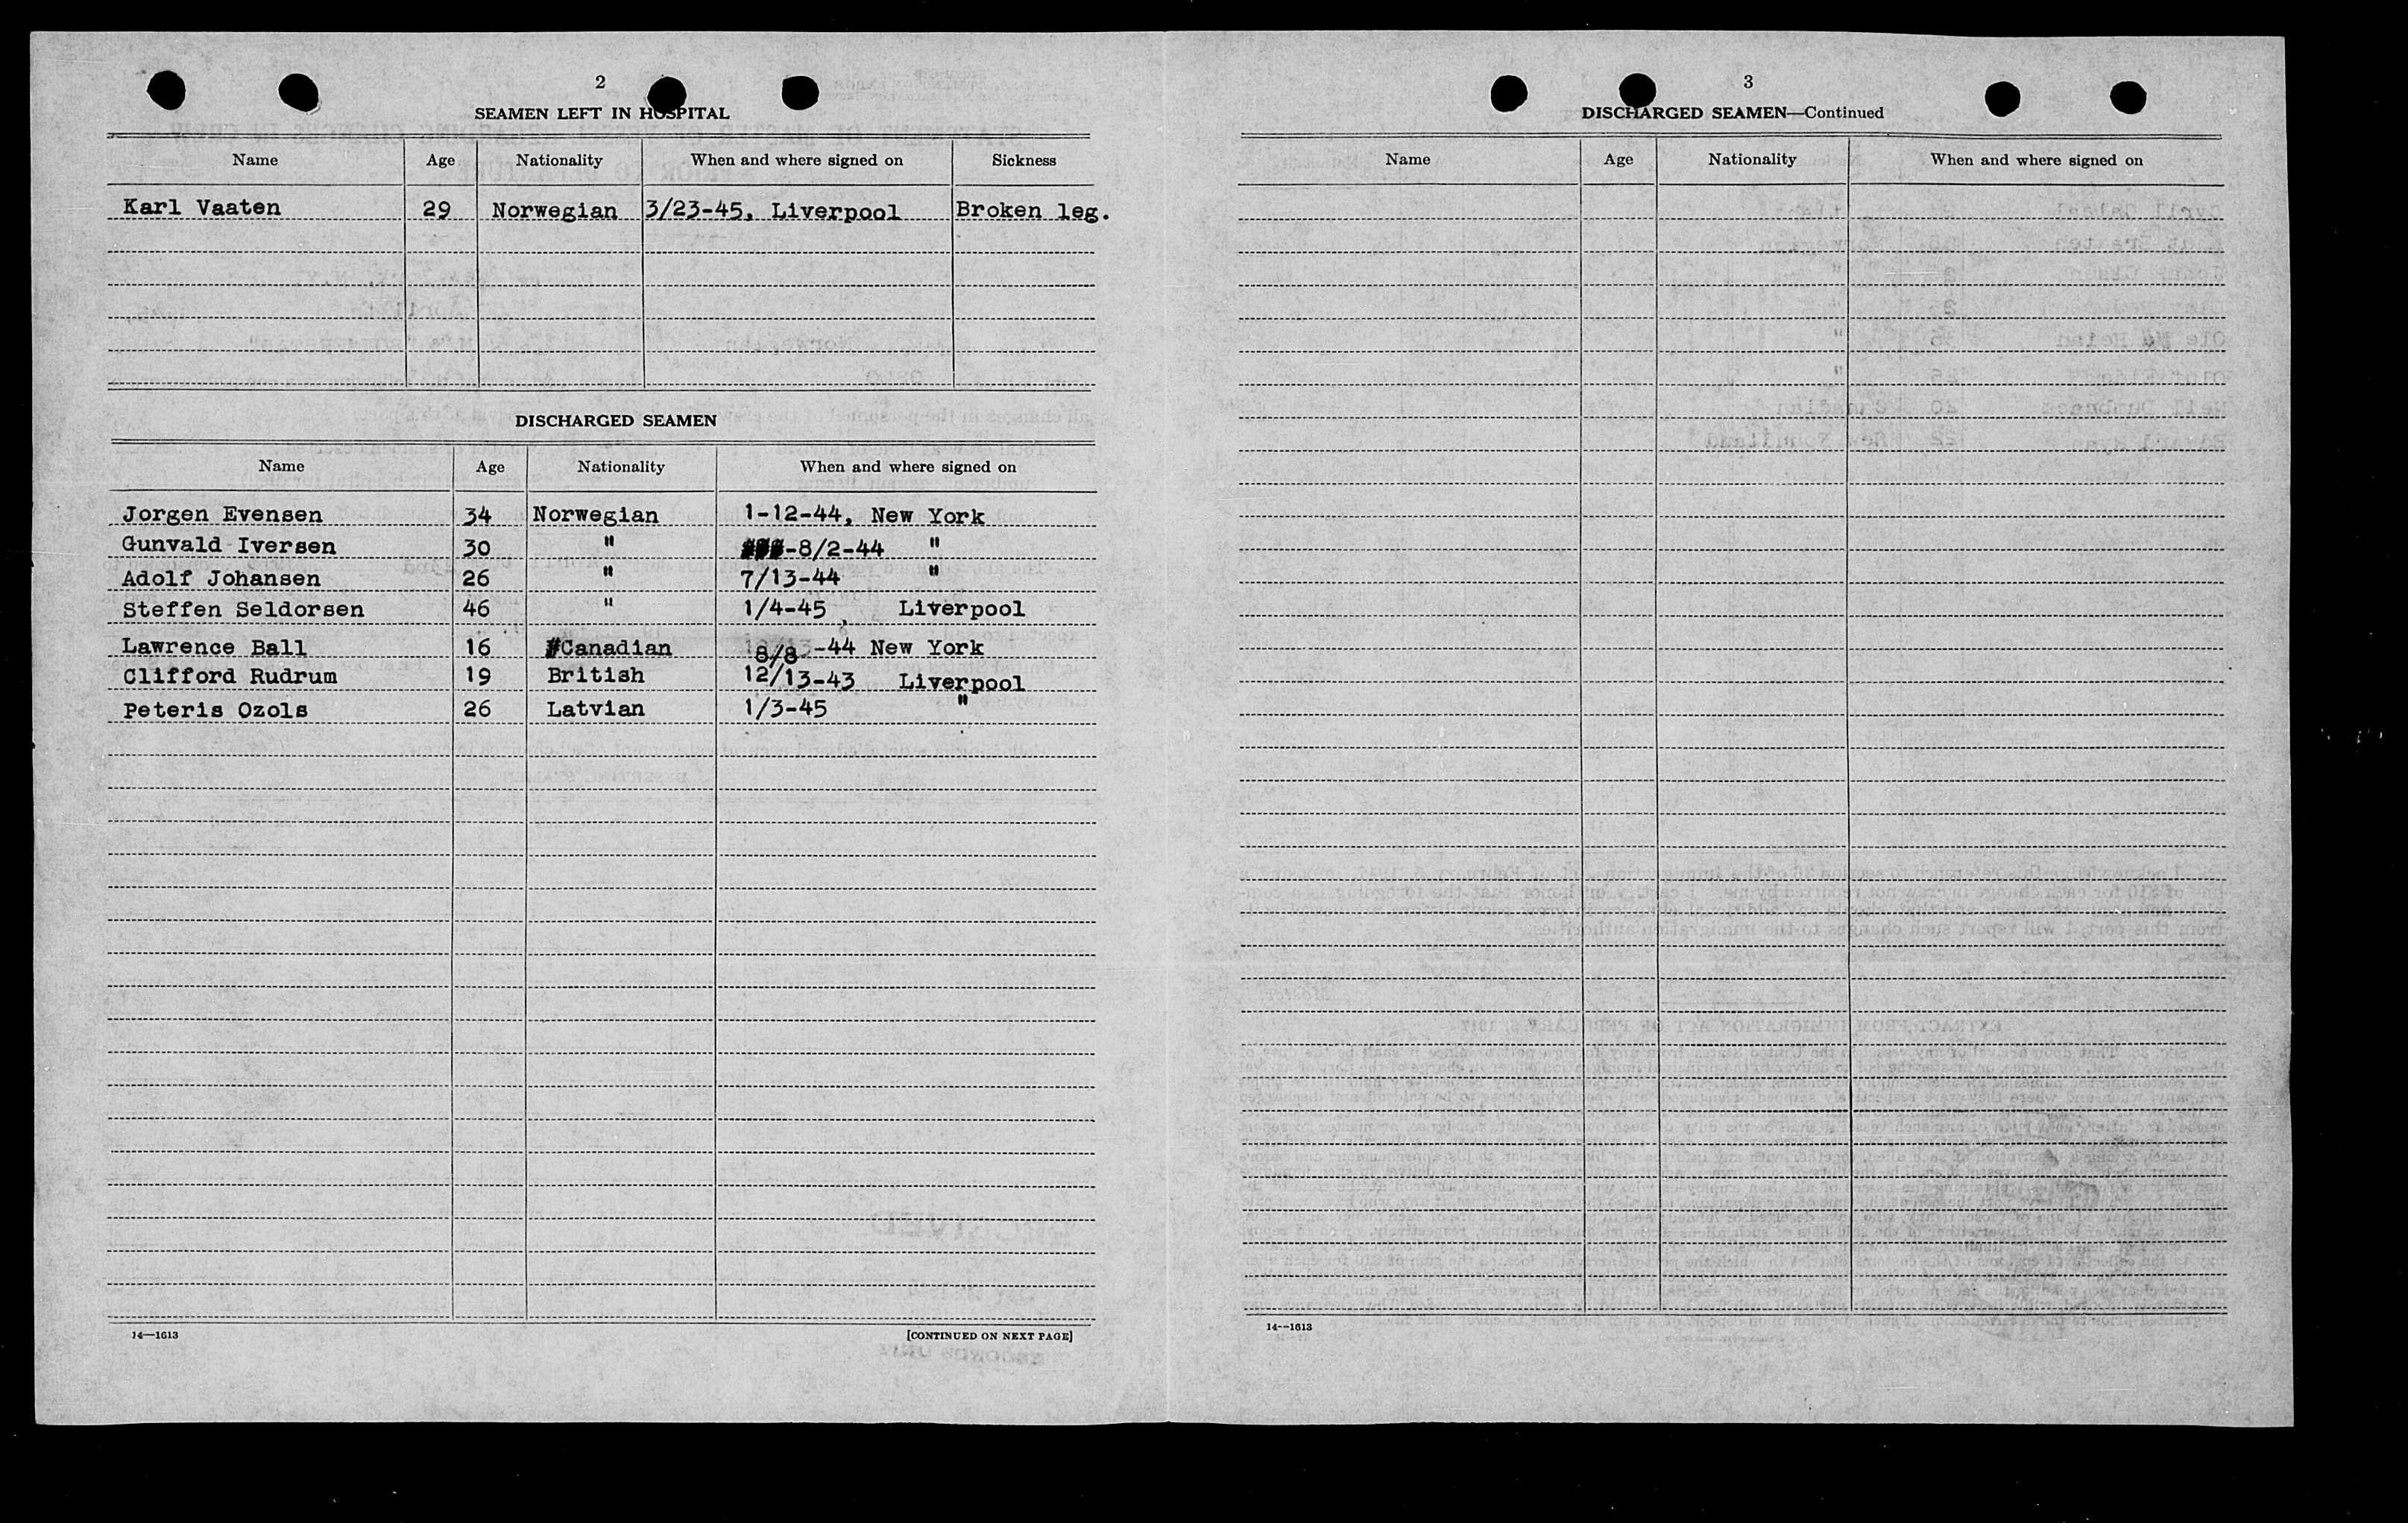 2
SEAMEN LEFT IN HOSPITAL
Name Age Nationality When and where signed on Sickness
Karl Vaaten 29 Norwegian 3/23-45, Liverpool Broken leg.
DISCHARGED SEAMEN
Name Age Nationality When and where signed on
Jorgen Evensen 34 Norwegian 1-12-44, New York
Gunvald Iversen 30 " -8/2-44 "
Adolf Johansen 26 " 7/13-44 "
Steffen Seldorsen 46 " 1/4-45, Liverpool
Lawrence Ball 16 #Canadian 8/8 -44 New York
Clifford Rudrum 19 British 12/13-43 Liverpool
Peteris Ozols 26 Latvian 1/3-45 "
14—1613 [CONTINUED ON NEXT PAGE]
3
DISCHARGED SEAMEN—Continued
Name Age Nationality When and where signed on
14—1613